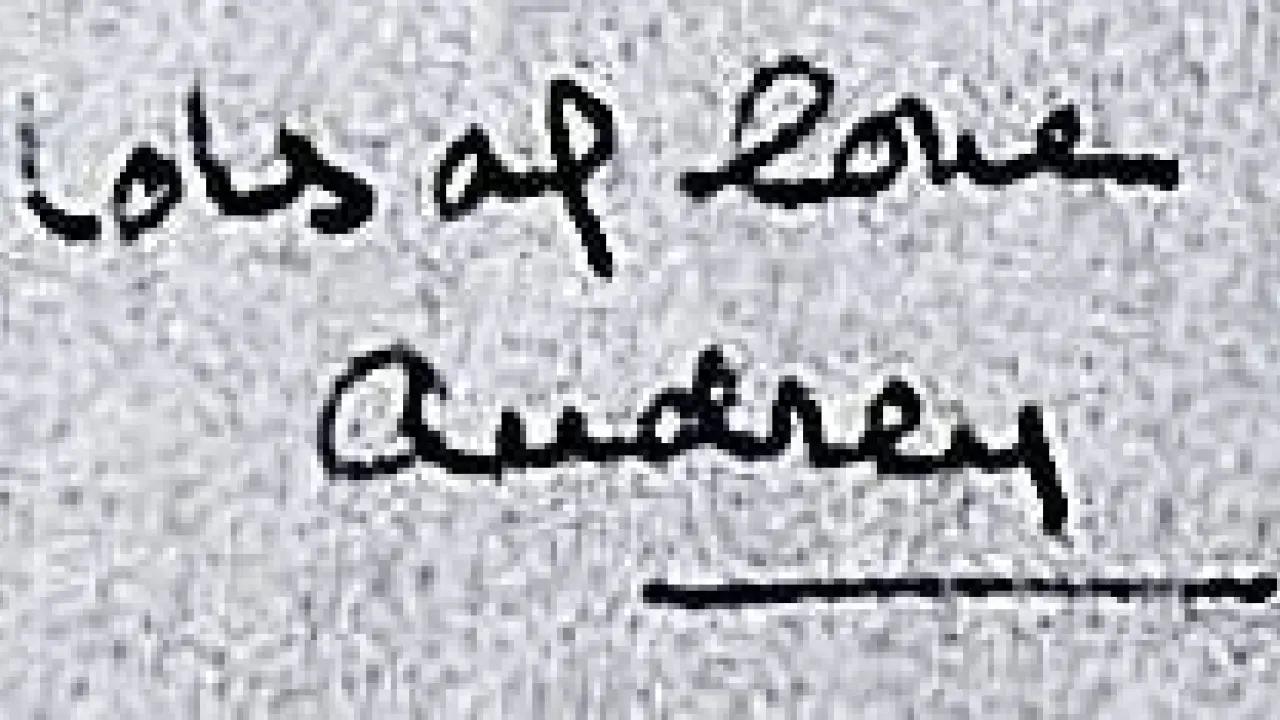 Lots of love
Audrey